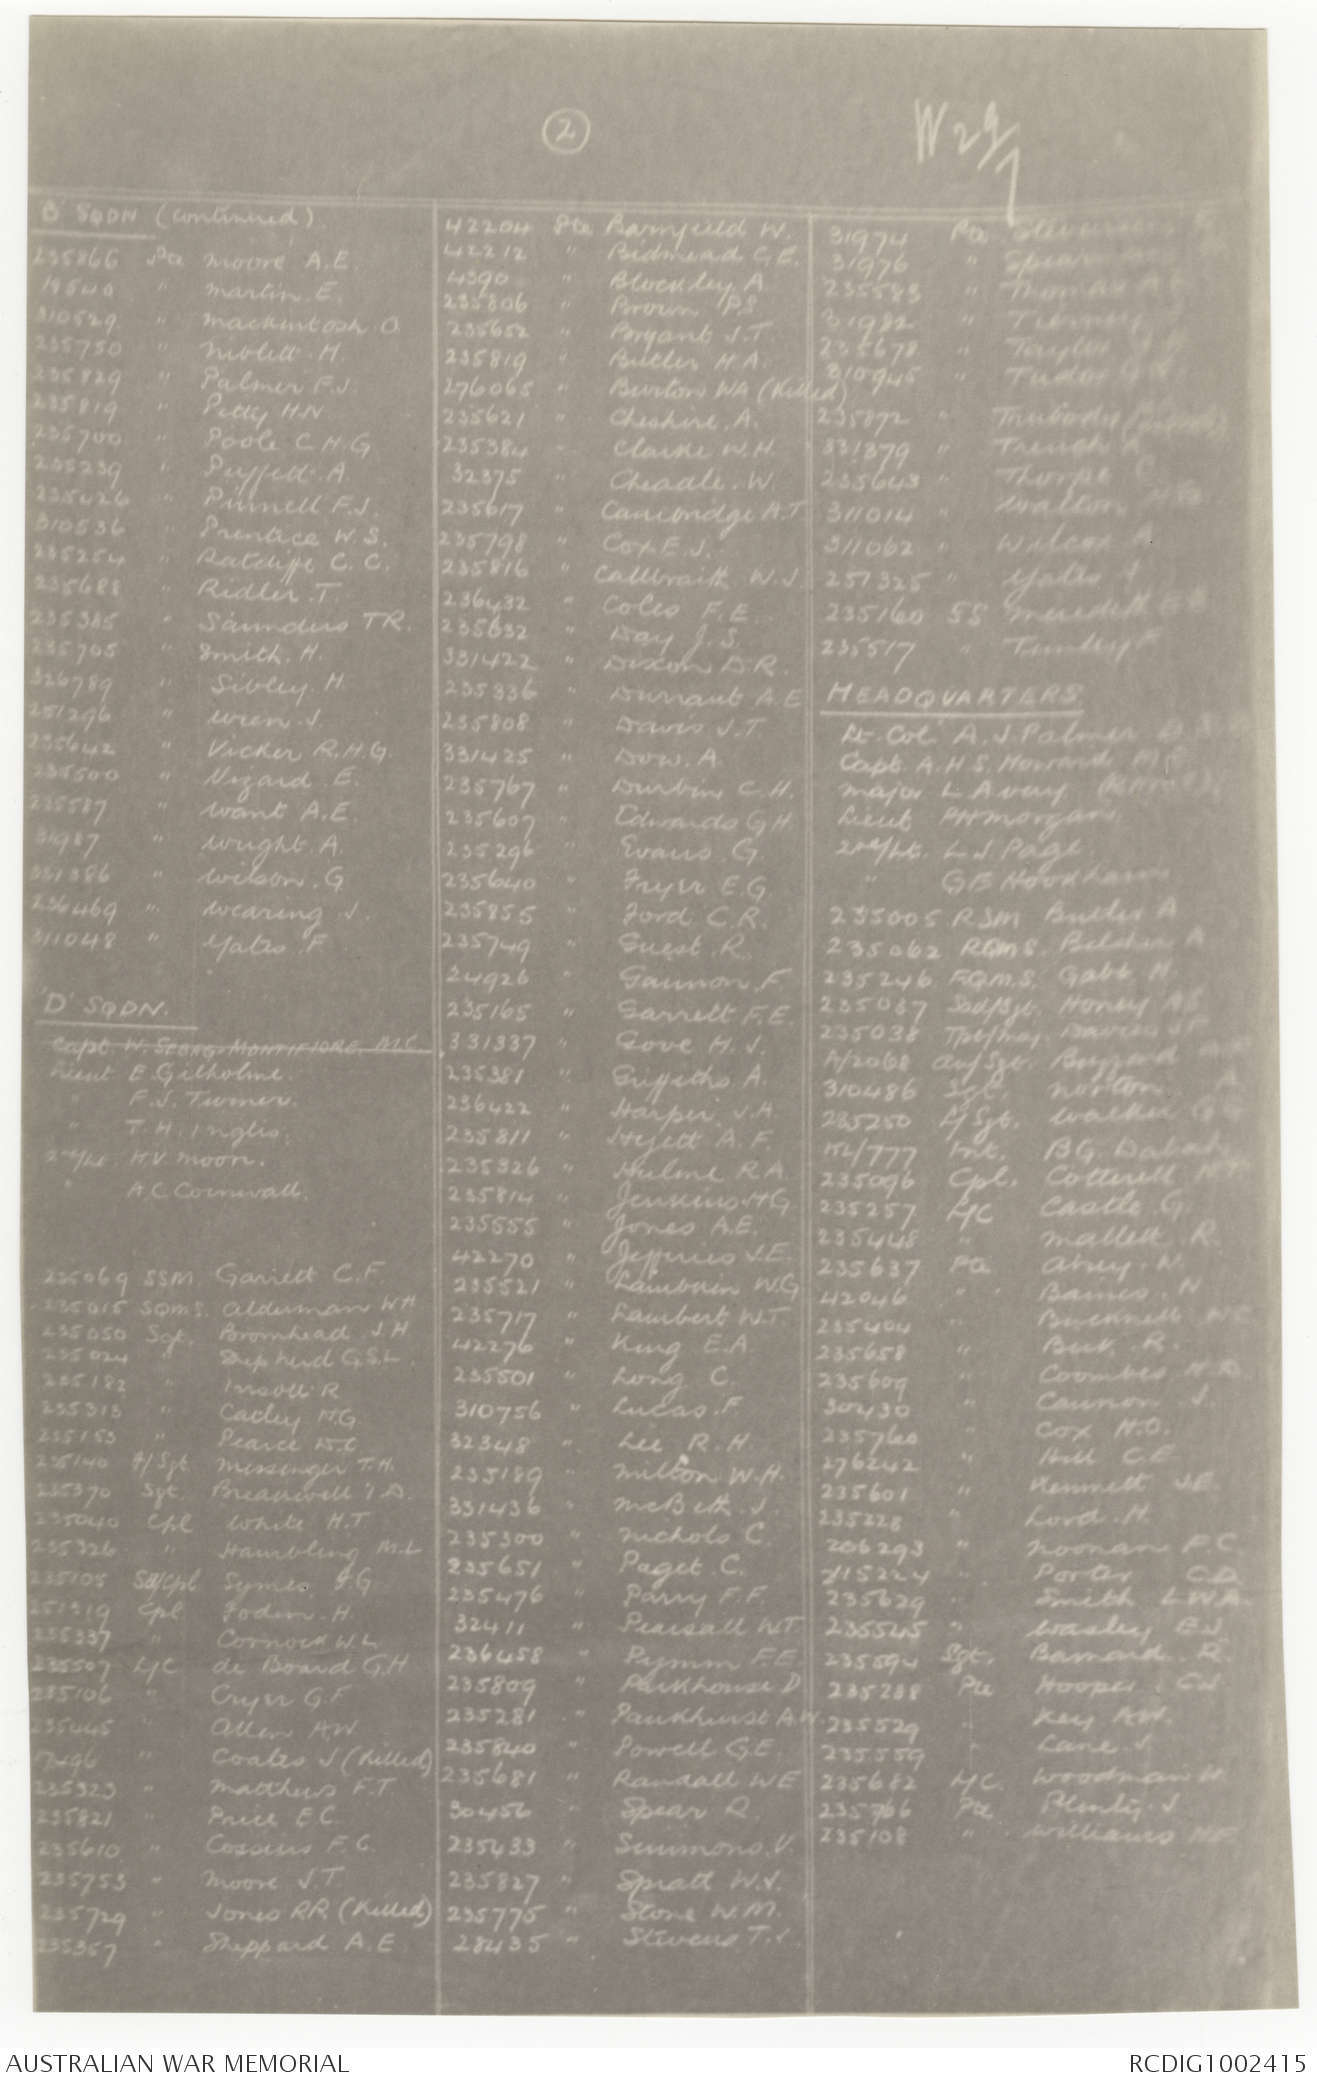 2
W 29/7
B' SQDN (Continued)
235866 Pte Moore A.E.
19540 " Martin E.
310529 " Mackintosh O.
235750 " Niblett H.
235829 " Palmer F.J.
235819 " Petty H.N.
235700 " Poole C.H.G.
235239 " A.
235026 " Pinnell F.J.
310536 " Prentice W.S.
235254 " Ratcliffe C.C.
235688 " Ridler T.
235385 " Saunders T.R.
235705 " Smith. H.
326789 " Sibley H.
251296 " Wren J.
235642 " Vicker R.H.G.
235500 " Vizard. E.
235587 " Want A.E.
31987 " Wright. A.
" Wilson. G
236469 " Wearing J.
311048 " Yates F.
'D' SQDN.
Capt. W. SEBAG-MONTIFIORE. M.C.
Lieut E. Gilholme.
" F.J. Turner.
" T.H. Inglis.
2nd/Lt H.V. Moon.
" A.C. Cornwall.
235069 SSM. Garrett C.F.
235015 SQMS. Alderman W.H
235050 Sgt. Bromhead J.H
235024 " Shepherd G.S.L.
235182 " Insoll R
235313 " Catley H.G.
235153 " Pearce
235140 A/Sgt Messenger T.H.
235370 Sgt. Breakwell
235040 Cpl White H.T
235326 " Hambling M.L
235105 Sdl/Cpl Symes F.G
251319 Cpl H.
235337 " Cornock W.L
235507 L/C de Board G.H
235106 " Cryer G.F
235045 " Allen A.W.
" Coates J (Killed)
235323 " Matthews F.T
235821 " Price E.C.
235610 " Cossins F.C.
235753 " Moore J.T.
235729 " Jones R.R. (Killed)
235357 " Sheppard A.E.
42204 Pte Barnfield W.
42212 " Bidmead G.E.
4390 " Blockley A
235806 " Brown P.S
235652 " Bryant J.T.
235819 " Butler H.A.
276065 " Burton WA (Killed)
235621 " Cheshire. A.
235384 " Clarke W.H.
32375 " Cheadle. W.
235617 " Cambridge A.T
235798 " Cox E.J.
235816 " Callbraith W.J
236432 " Coles F.E.
235632 " Day J.S.
331422 " Dixon D.R.
235336 " Durrant A.E
235808 " Davis J.T
331425 " Dow. A.
235767 " Durbin C.H.
235607 " Edwards G.H.
235296 " Evans. G.
235640 " Fryer E.G.
235855 " Ford C.R.
235749 " Guest. R.
24926 " Gannon. F
235165 " Garrett F.E.
331337 " Gove H.J.
235381 " Griffiths A.
236422 " Harper. J.H
235811 " Hyett A.F.
235326 " Hulme R.A.
235814 " Jenkins H.G
235555 " Jones A.E.
42270 " Jefferies J.E.
235521 " W.G
235717 " Lambert W.T.
42276 " King E.A.
235501 " Long C.
310756 " Lucas. F.
32348 " Lee R.H.
235189 " Milton W.H.
331436 " McBeth J.
235300 " Nichols C.
235651 " Paget C.
235476 " Parry F.F.
32411 " Pearsall W.T.
236458 " Pymm F.E.
235809 " Parkhouse D
235281 " Pankhurst A.H.
235840 " Powell G.E.
235681 " Randall W.E
30456 " Spear R.
235433 " Simmons. V.
235827 " Spratt W.J.
235775 " Stone W.M.
28435 " Stevens T.J.
31974 Pte
31976 "
235583 " Thomas
31982 " Tierney
235678 " Taylor
310945 " Tudor
235872 " Trubody
331379 " French
235643 " Thorpe
311014 " Walton
311062 " Wilcox A
257325 " Yates J
235160 SS Meredith
235517 "
HEADQUARTERS
Lt. Col A.J. Palmer D.S.O.
Capt A.H.S. Howard M.C.
Major L A (Killed)
Lieut P.H. Morgan
2nd/Lt. L.J. Page
" G.E Hookham
235005 RSM Butler A
235062 RQMS. Belcher A
235246 FQMS. Gabb H.
235037 Sdl/Sgt. Honey
235038 Tpt/Maj. Davies
A/2068 Buzzard
310486 Sgt. Norton
235250 A/Sgt. Walker G
B.G.
235096 Cpl. Cotterell
235257 L/C Castle G.
235448 " Mallett. R.
235637 Pte H.
42046 " Baines. H
235404 " Bucknell
235658 " Buck. R.
235609 " Coombes H.R.
30430 " Cannon. J.
235760 " Cox H.O.
276242 " Hill C.E.
235601 " Kennett J.E.
235228 " Lord. H.
206293 " Noonan F.C.
" Porter C.D.
235629 " Smith L.W.A.
235545 " Wasley E.J.
235594 Sgt. Barnard. R.
235238 Pte Hooper. C.J.
235529 " Key A.W.
235559 " Lane J.
235682 L/C. Woodman H.
235766 Pte Plenty. J.
235108 " Williams
AUSTRALIAN WAR MEMORIAL
RCDIG1002415